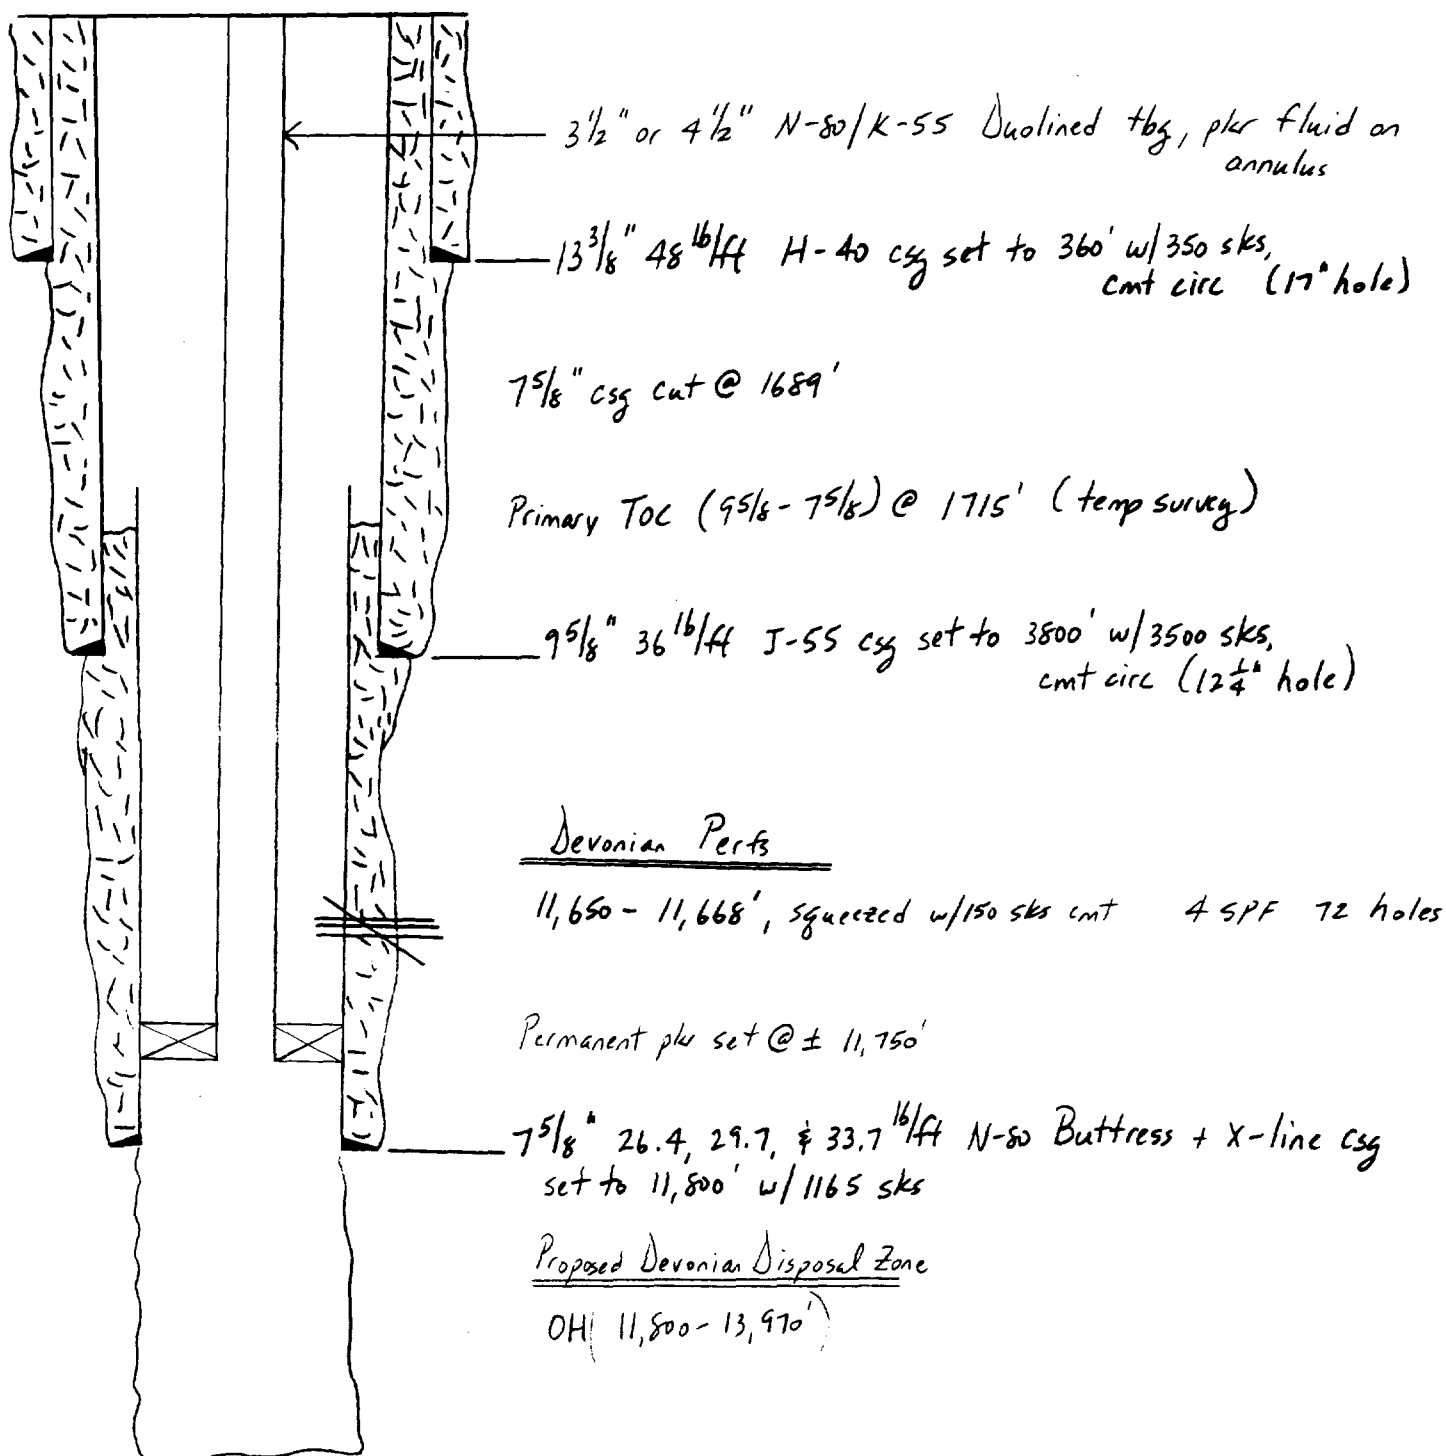 3 1/2" or 4 1/2" N-80/K-55 Duolined tbg, pkr fluid on
annulus
13 3/8" 48 lb/ft H-40 csg set to 360' w/350 sks,
cmt circ (17" hole)
7 5/8" csg cut @ 1689'
Primary TOC (9 5/8 - 7 5/8) @ 1715' (temp survey)
9 5/8" 36 lb/ft J-55 csg set to 3800' w/3500 sks,
cmt circ (12 1/4" hole)
Devonian Perfs
11,650 - 11,668', squeezed w/150 sks cmt 4 SPF 72 holes
Permanent pkr set @ ± 11,750'
7 5/8" 26.4, 29.7, & 33.7 lb/ft N-80 Buttress + X-line csg
set to 11,800' w/1165 sks
Proposed Devonian Disposal Zone
OH (11,800 - 13,970')